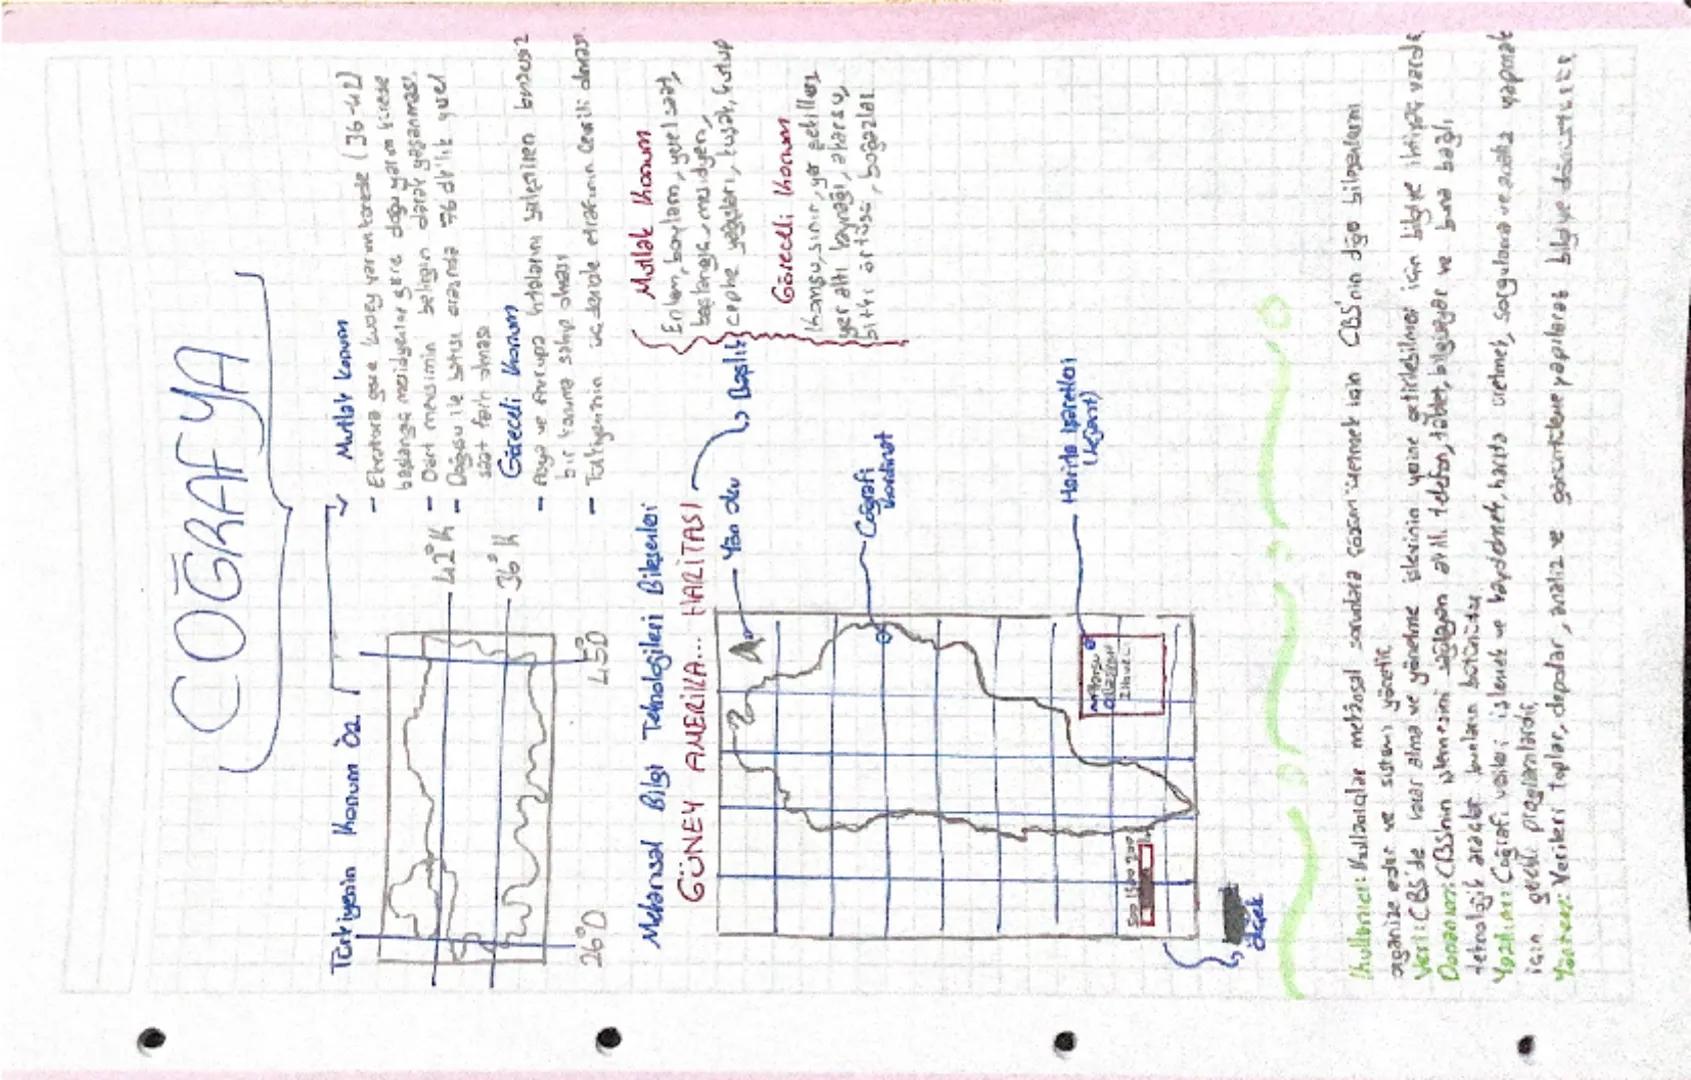 COĞRAFYA
Türkiyenin Konum Öz.
Mutlak Konum
- Ekvatora göre kuzey yarımkürede (36-42)
başlangıç meridyenine göre doğu yarım kürede
- Dört mevsimin belirgin olarak yaşanması.
- Doğusu ile batısı arasında 76 dk'lık yerel
saat farkı olması
Göreceli Konum
- Asya ve Avrupa kıtalarını birleştiren
bir konuma sahip olması
- Türkiyenin üç tarafının denizle çevrili olması.
42° K
36° K
26° D
45° D
Mutlak Konum
Enlem, boylam, yerel saat,
başlangıç meridyen,
cephe yağışları, kuşak, kutup
Göreceli Konum
Komşu, sınır, yer şekilleri,
yer altı kaynağı, akarsu,
bitki örtüsü, boğazlar
Mekansal Bilgi Teknolojileri Bileşenleri
GÜNEY AMERİKA... HARİTASI
Başlık
Yön oku
Coğrafi
Kordinat
Harita İşaretleri
(Lejant)
Ölçek
Kullanıcı: Kullanıcılar mekansal sorunlara çözüm üretmek için CBS'nin diğer bileşenlerini
organize eder ve sistemi yönetir
Veri: CBS'de karar alma ve yönetme işlerinin yerine getirilebilmesi için bilgiye ihtiyaç vardır
Donanım: CBS'nin işlemesini sağlayan akıllı telefon, tablet, bilgisayar ve buna bağlı
teknolojik araçlar bunların bütünüdür
Yazılım: Coğrafi verileri işlemek ve kaydetmek, harita üretmek, sorgulama ve analiz yapmak
için gerekli programlardır.
Yöntem: Verileri toplar, depolar, analiz ve görüntüleme yapılarak bilgiye dönüştürür